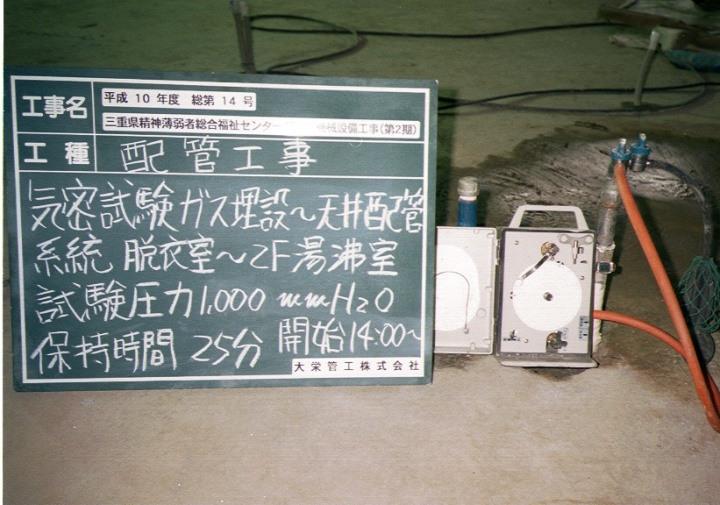 工事名
平成10年度 総第14号
三重県精神薄弱者総合福祉センター 機械設備工事(第2期)
工種 配管工事
気密試験ガス埋設~天井配管
系統 脱衣室~2F湯沸室
試験圧力1,000mmH2O
保持時間 25分 開始14:00~
大栄管工株式会社